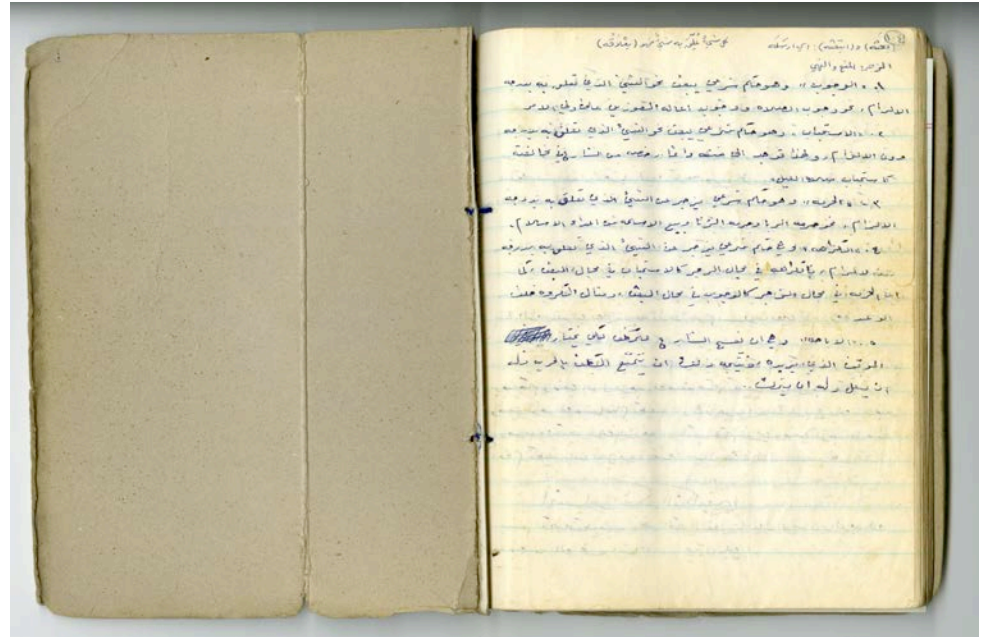 (بعثه) و (ابتعثه): اي ارسله كل شيء يتعلق به شيء فهو (بعلاقه)
الزجر: المنع والنهي
١. «الوجوب» وهو حكم شرعي يبعث نحو الشيء الذي تعلق به بدرجه
الالزام، نحو وجوب الصلاه ووجوب اعاله المعوزين على ولي الامر
٢. «الاستحباب» وهو حكم شرعي يبعث نحو الشيء الذي تعلق به بدرجه
دون الالزام، ولهذا توجد الى جنبه دائما رخصه من الشارع في مخالفته
كاستحباب صلاه الليل.
٣. «الحرمه» وهو حكم شرعي يزجر عن الشيء الذي تعلق به بدرجه
الالزام، نحو حرمه الربا وحرمه الزنا وبيع الاسلحه من اعداء الاسلام.
٤. «الكراهه» وهي حكم شرعي يزجر عن الشيء الذي تعلق به بدرجه
دون الالزام، فالكراهه في مجال الزجر كالاستحباب في مجال البعث، كما
ان الحرمه في مجال الزجر كالوجوب في مجال البعث، ومثال المكروه خلف
الوعد
٥. «الاباحه» وهي ان يفسح الشارع للمكلف لكي يختار
الموقف الذي يريده ونتيجه ذلك ان يتمتع المكلف بالحريه فله
ان يفعل وله ان يترك.